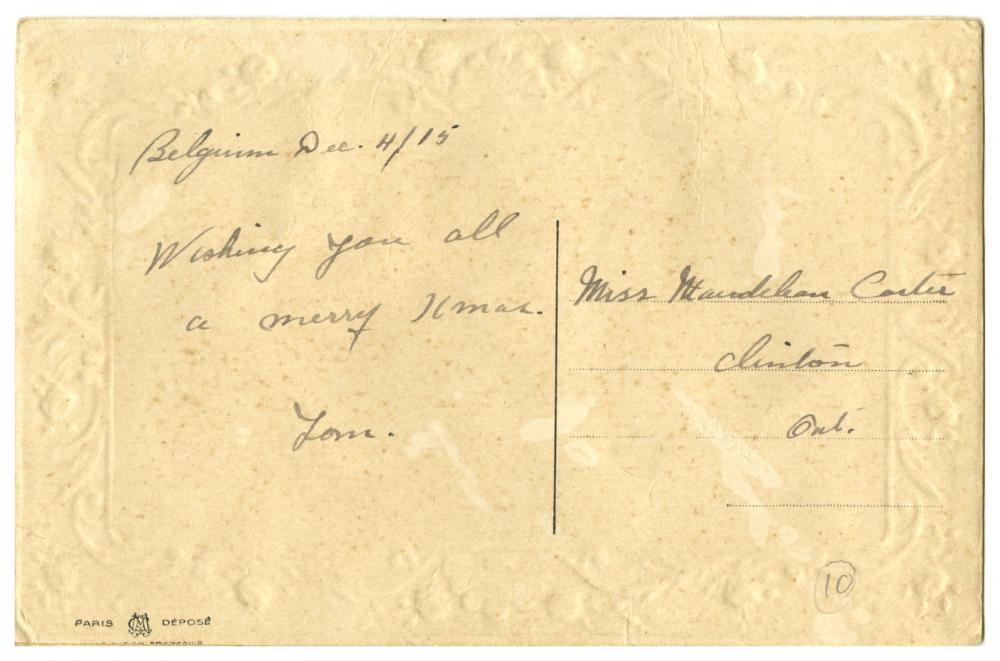 Belgium Dec. 4/15
Wishing you all
a merry Xmas.
Tom.
Miss Carter
Clinton
Ont.
10
PARIS DÉPOSÉ